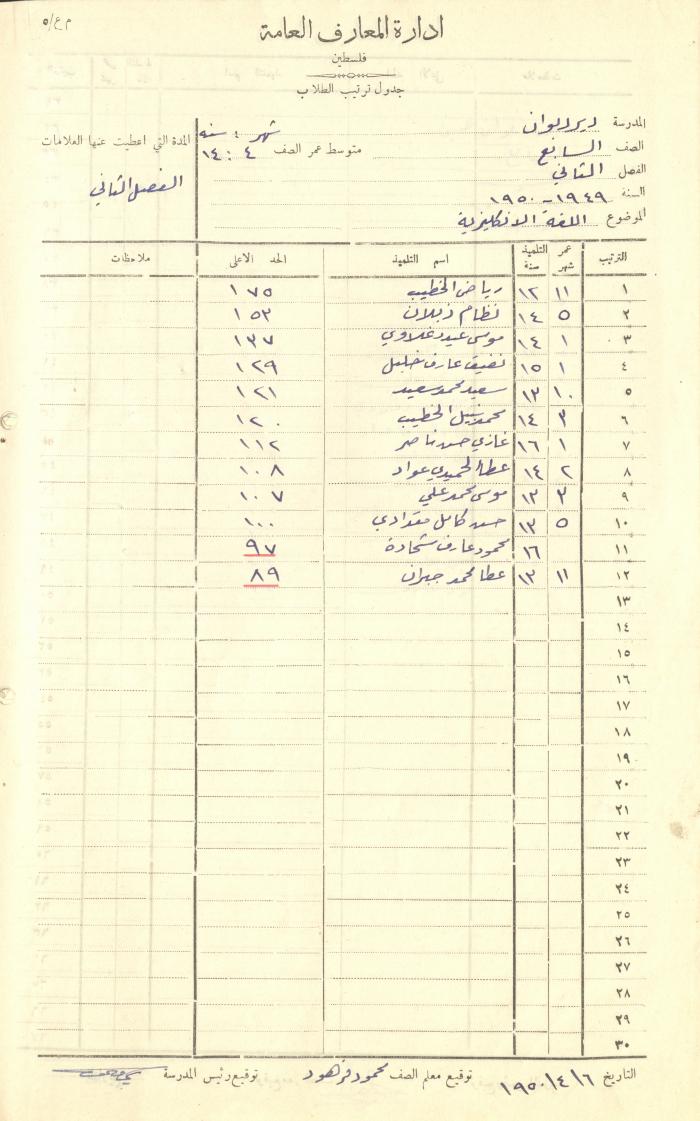 م ع/٥
ادارة المعارف العامة
فلسطين
جدول ترتيب الطلاب
المدرسة ديردبوان
الصف السابع
الفصل الثاني
السنة ١٩٤٩ - ١٩٥٠
الموضوع اللغة الانكليزية
شهر : سنه
متوسط عمر الصف ٤ : ١٤
المدة التي اعطيت عنها العلامات
الفصل الثاني
الترتيب عمر التلميذ شهر سنة اسم التلميذ الحد الاعلى ملاحظات
١ ١١ ١٢ رياض الخطيب ١٧٥
٢ ٥ ١٤ نظام ذبلان ١٥٣
٣ ١ ١٤ موسى عيد دغلاوي ١٣٧
٤ ١ ١٥ عارف خليل ١٢٩
٥ ١٠ ١٣ سعيد محمد سعيد ١٢١
٦ ٣ ١٤ محمد نبيل الخطيب ١٢٠
٧ ١ ١٦ غازي حسن ناصر ١١٢
٨ ٢ ١٤ عطا الحميدي عواد ١٠٨
٩ ٣ ١٣ موسى محمد علي ١٠٧
١٠ ٥ ١٣ حسن كامل مقدادي ١٠٠
١١ ١٦ محمود عارف شحادة ٩٧
١٢ ١١ ١٣ عطا محمد جبران ٨٩
١٣
١٤
١٥
١٦
١٧
١٨
١٩
٢٠
٢١
٢٢
٢٣
٢٤
٢٥
٢٦
٢٧
٢٨
٢٩
٣٠
التاريخ ٦/٤/١٩٥٠ توقيع معلم الصف محمود فرهود توقيع رئيس المدرسة